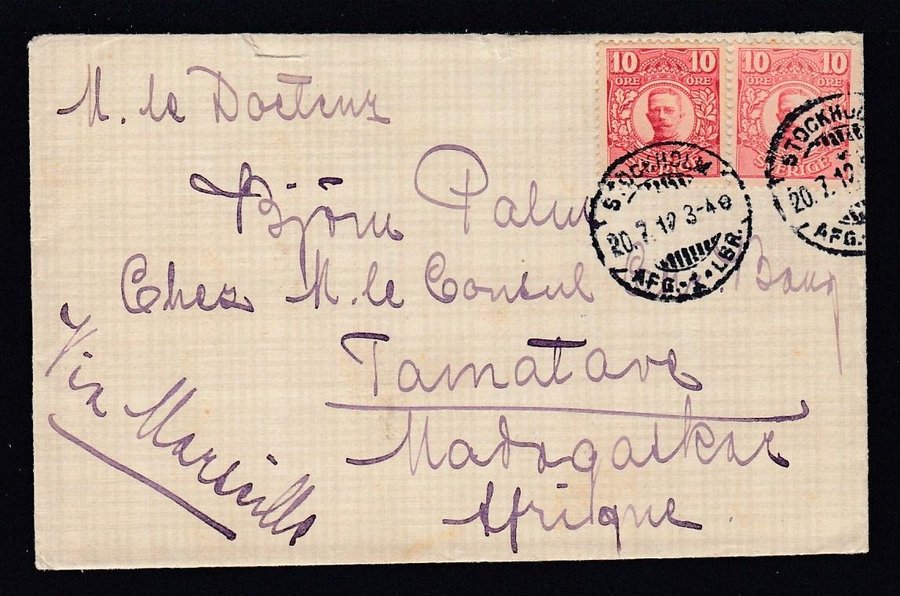 10 10
ÖRE ÖRE
10 10
ÖRE ÖRE
SVERIGE
STOCKHOLM
20.7.12 3-4
AFG.·1·LBR.
STOCKHOL
20.7.12
AFG.
M. le Docteur
Björn Palm
Chez M. le Consul
Tamatave
Madagaskar
Afrique
Via Marseille